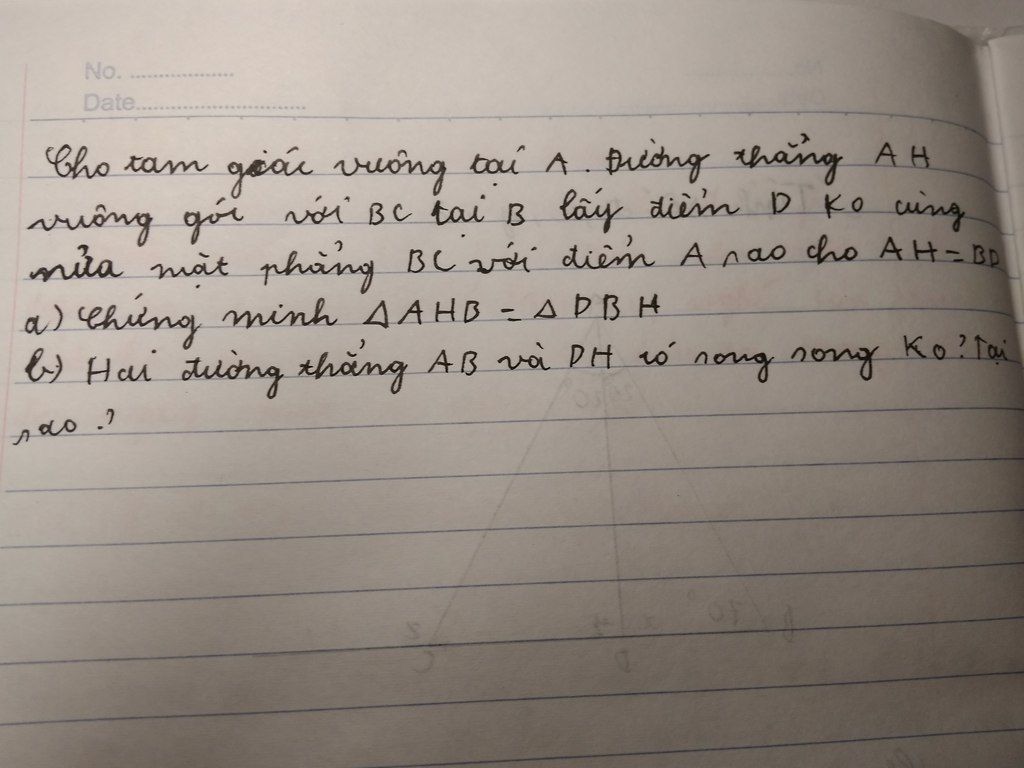 No. ..................
Date..............................
Cho tam giác vuông tại A. Đường thẳng AH
vuông góc với BC tại B lấy điểm D Ko cùng
nửa mặt phẳng BC với điểm A sao cho AH = BD
a) Chứng minh Δ AHB = Δ DBH
b) Hai đường thẳng AB và DH có song song Ko? Tại
sao?